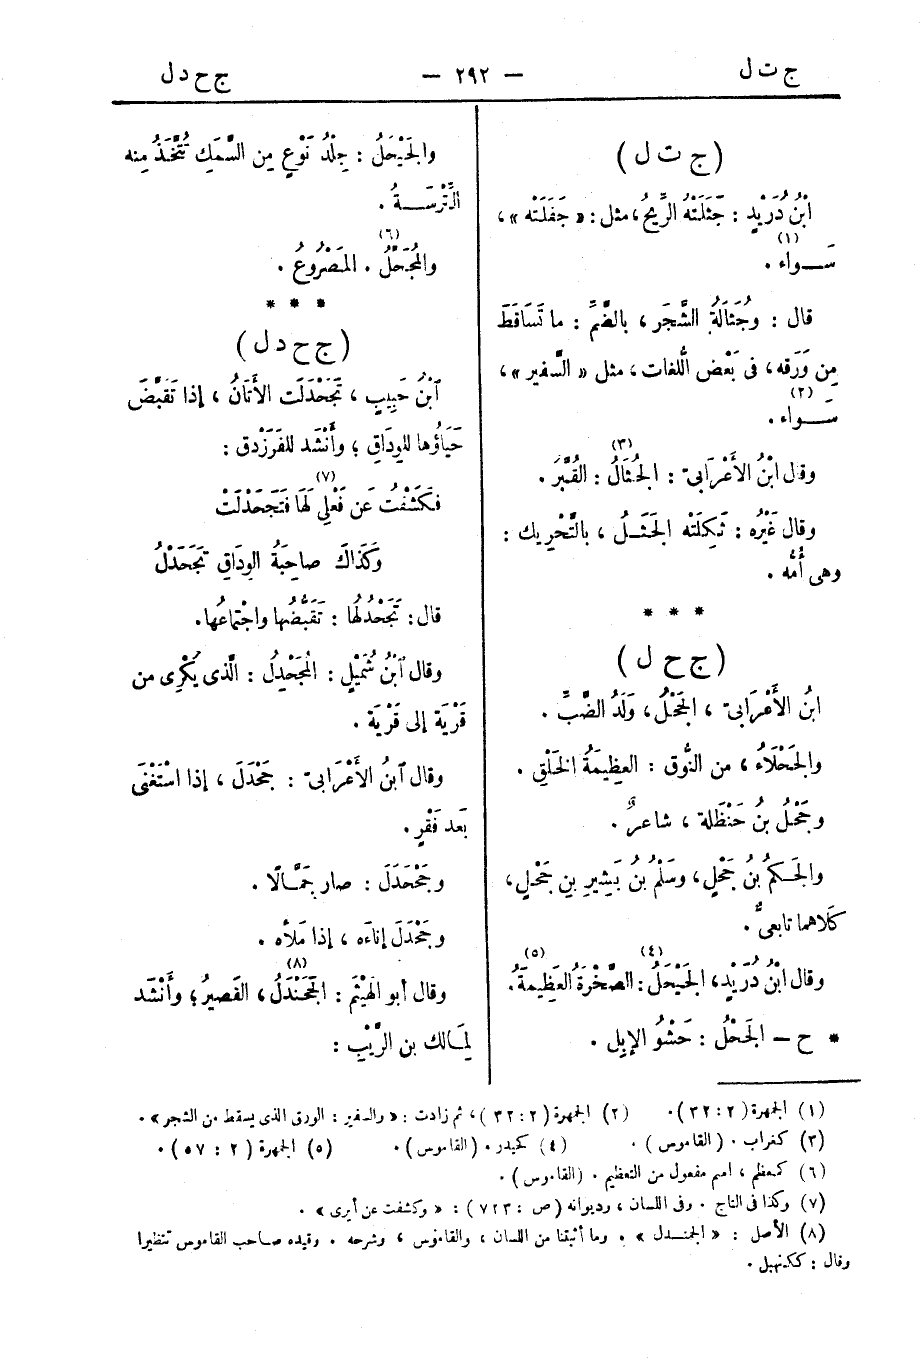 ج ث ل
— ٢٩٢ —
ج ح د ل
(ج ث ل)
ابْنُ دُرَيْدٍ : جَثَلَتْهُ الرِّيحُ، مثل : « جَفَلَتْه »،
سَــواء (١) .
قال : وجُثَالَةُ الشَّجَر ، بالضَّمِّ : ما تَسَاقَطَ
مِن وَرَقه، فى بَعْض اللُّغات، مثل « السَّفير »،
سَــواء (٢) .
وقال ابْنُ الأَعْرَابىّ : الجُثَالُ (٣) : القُبَّرَ .
وقال غَيْرُه : ثَكِلَتْه الجَثَــلُ ، بالتَّحْرِيك :
وهى أُمُّه .
* * *
(ج ح ل)
ابنُ الأَعْرَابىّ ، الجَحْلُ، وَلَدُ الضَّبِّ .
والجَحْلَاءُ ، من النُّوق : العظِيمَةُ الخَلْقِ .
وجَحْلُ بنُ حَنْظَلة ، شاعرٌ .
والحَكَمُ بنُ جَحْلٍ، وسَلْمُ بنُ بَشِيرِ بنِ جَحْلٍ،
كلَاهما تابعىٌّ .
وقال ابْنُ دُرَيْدٍ، الجَيْحَلُ (٤) : الصَّخْرَةُ العَظِيمَةُ (٥) .
* ح — الجَحْلُ : حَشْوُ الإبِل .
والجَيْحَلُ : جِلْدُ نَوْعٍ مِن السَّمَك تُتَّخَذُ مِنه
التِّرَسَــةُ .
والمُجَحَّلُ (٦) . المَصْرُوعُ .
* * *
(ج ح د ل)
ٱبْنُ حَبِيبٍ ، تَجَحْدَلَت الأَتَانُ ، إذا تَقَبَّضَ
حَيَاؤُها للوِدَاقِ ؛ وأَنْشَد للفَرَزْدق :
فكَشَفْتُ عَن فَعْلِى (٧) لَهَا فتَجَحْدَلَتْ
وكَذَاكَ صاحِبَةُ الوِدَاقِ تَجَحْدَلُ
قال : تَجَحْدُلُهَا : تَقَبُّضُها واجْتِماعُها.
وقال ٱبْنُ شُمَيْلٍ : المُجَحْدِلُ : الَّذى يُكْرِى من
قَرْيَة إلى قَرْيَة .
وقال ٱبنُ الأَعْرَابىّ : جَحْدَلَ ، إذا اسْتَغْنَى
بَعد فَقْرٍ .
وجَحْدَلَ : صار جَمَّــالًا .
وجَحْدَلَ إناءَه ، إذا مَلأه .
وقال أبو الهَيْثَم : الجَحَنْدَلُ (٨)، القَصيرُ؛ وأَنْشَد
لمَــالك بن الرَّيْبِ :
(١) الجمهرة ( ٢ : ٣٢ ) .
(٢) الجمهرة ( ٢ : ٣٢ )، ثم زادت : « والسفير : الورق الذى يسقط من الشجر » .
(٣) كغراب . ( القاموس ) .
(٤) كحيدر . ( القاموس ) .
(٥) الجمهرة ( ٢ : ٥٧ ) .
(٦) كمعظم ، اسم مفعول من التعظيم . ( القاموس ) .
(٧) وكذا فى التاج . وفى اللسان ، وديوانه ( ص : ٧٢٣ ) : « وكشفت عن أيرى » .
(٨) الأصل : « الجمندل » . وما أثبتنا من اللسان ، والقاموس ، وشرحه . وقيده صاحب القاموس تنظيرا
وقال : ككنهبل .